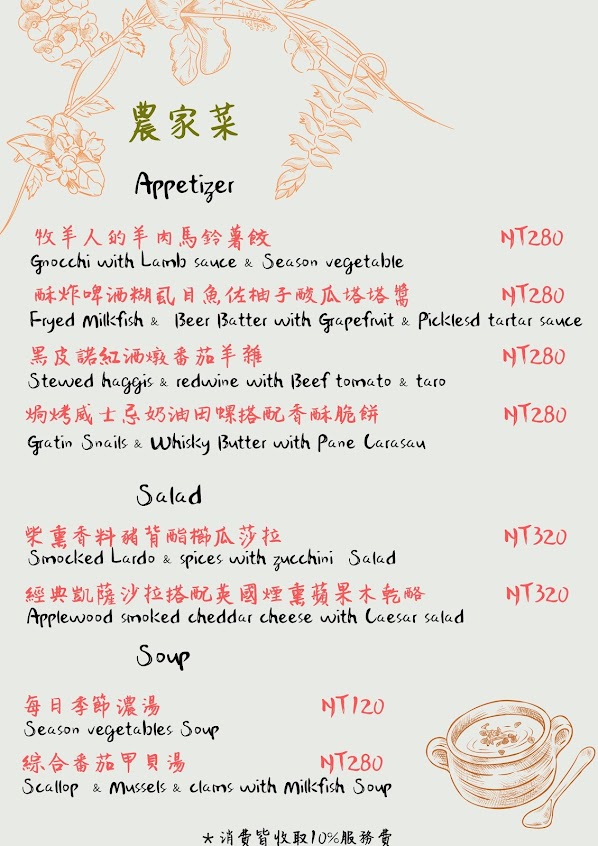 農家菜
Appetizer
牧羊人的羊肉馬鈴薯餃 NT280
Gnocchi with Lamb sauce & Season vegetable
酥炸啤酒糊虱目魚佐柚子酸瓜塔塔醬 NT280
Fryed Milkfish & Beer Batter with Grapefruit & Picklesd tartar sauce
黑皮諾紅酒燉番茄羊雜 NT280
Stewed haggis & redwine with Beef tomato & taro
焗烤威士忌奶油田螺搭配香酥脆餅 NT280
Gratin Snails & Whisky Butter with Pane Carasau
Salad
柴熏香料豬背脂櫛瓜莎拉 NT320
Smocked Lardo & spices with zucchini Salad
經典凱薩沙拉搭配英國煙熏蘋果木乾酪 NT320
Applewood smoked cheddar cheese with Caesar salad
Soup
每日季節濃湯 NT120
Season vegetables Soup
綜合番茄甲貝湯 NT280
Scallop & Mussels & clams with Milkfish Soup
*消費皆收取10%服務費